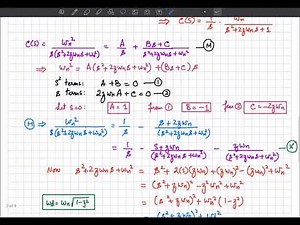 ⇒ C(s) = 1/s · ωn²/(s²+2ζωns+1
C(s) = ωn²/(s(s²+2ζωns+ωn²)) = A/s + (Bs+C)/(s²+2ζωns+ωn²) — (M)
⇒ ωn² = A(s²+2ζωns+ωn²) + (Bs+C)s
s² terms: A+B=0 — (1)
s terms: 2ζωnA+C=0 — (2)
let s=0: A=1 from (1) B=-1 from (2) C=-2ζωn
(M) ⇒ ωn²/(s(s²+2ζωns+ωn²)) = 1/s - (s+2ζωn)/(s²+2ζωns+ωn²)
= 1/s - (s+ζωn)/(s²+2ζωns+ωn²) - ζωn/(s²+2ζωns+ωn²) — (K)
Now s²+2ζωns+ωn² = s²+2(s)(ζωn)+(ζωn)²-(ζωn)²+ωn²
= (s+ζωn)²-ζ²ωn²+ωn²
ωd=ωn√1-ζ² = (s+ζωn)²+ωn²(1-ζ²)